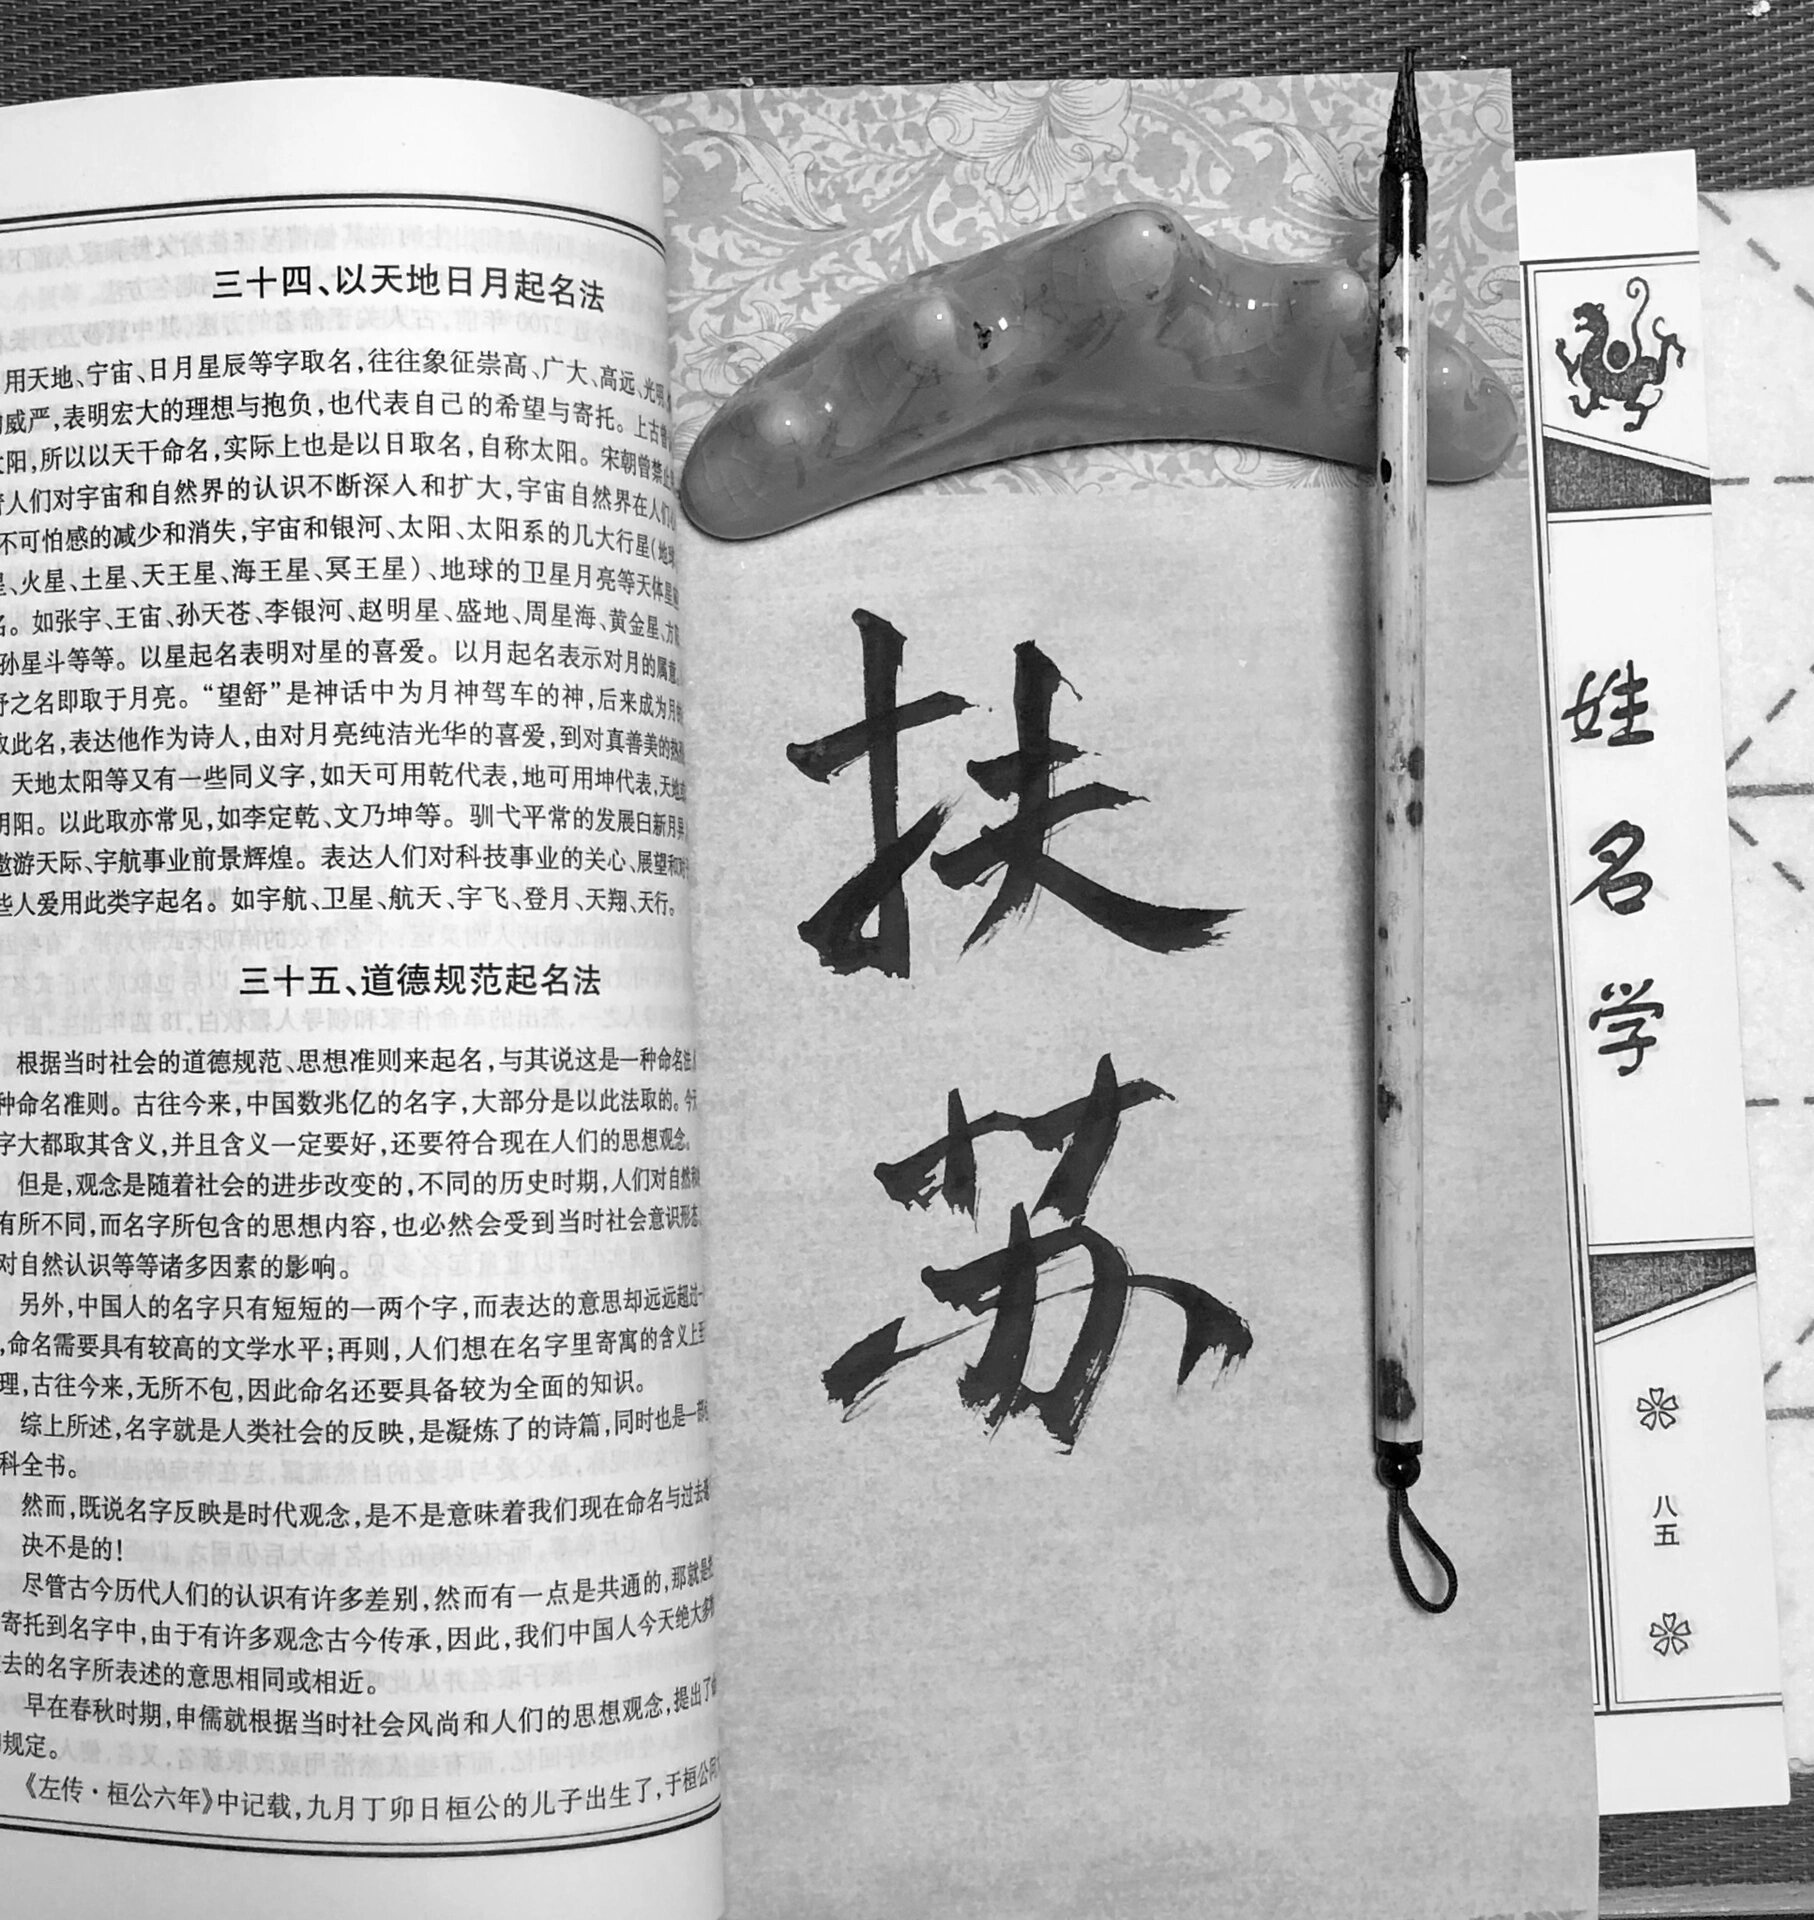 三十四、以天地日月起名法
用天地、宁宙、日月星辰等字取名，往往象征崇高、广大、高远、光明、
威严，表明宏大的理想与抱负，也代表自己的希望与寄托。上古曾
太阳，所以以天干命名，实际上也是以日取名，自称太阳。宋朝曾禁止
人们对宇宙和自然界的认识不断深入和扩大，宇宙自然界在人们心
不可怕感的减少和消失，宇宙和银河、太阳、太阳系的几大行星（地球、
星、火星、土星、天王星、海王星、冥王星）、地球的卫星月亮等天体星
名。如张宇、王宙、孙天苍、李银河、赵明星、盛地、周星海、黄金星、方
孙星斗等等。以星起名表明对星的喜爱。以月起名表示对月的属意。
舒之名即取于月亮。“望舒”是神话中为月神驾车的神，后来成为月
取此名，表达他作为诗人，由对月亮纯洁光华的喜爱，到对真善美的热
天地太阳等又有一些同义字，如天可用乾代表，地可用坤代表，天地或
阴阳。以此取亦常见，如李定乾、文乃坤等。驯弋平常的发展曰新月异，
遨游天际、宇航事业前景辉煌。表达人们对科技事业的关心、展望和对
些人爱用此类字起名。如宇航、卫星、航天、宇飞、登月、天翔、天行。
三十五、道德规范起名法
根据当时社会的道德规范、思想准则来起名，与其说这是一种命名法，
种命名准则。古往今来，中国数兆亿的名字，大部分是以此法取的。今
字大都取其含义，并且含义一定要好，还要符合现在人们的思想观念。
但是，观念是随着社会的进步改变的，不同的历史时期，人们对自然和
有所不同，而名字所包含的思想内容，也必然会受到当时社会意识形态、
对自然认识等等诸多因素的影响。
另外，中国人的名字只有短短的一两个字，而表达的意思却远远超过一
，命名需要具有较高的文学水平；再则，人们想在名字里寄寓的含义上至
理，古往今来，无所不包，因此命名还要具备较为全面的知识。
综上所述，名字就是人类社会的反映，是凝炼了的诗篇，同时也是一部
科全书。
然而，既说名字反映是时代观念，是不是意味着我们现在命名与过去
决不是的！
尽管古今历代人们的认识有许多差别，然而有一点是共通的，那就是把
寄托到名字中，由于有许多观念古今传承，因此，我们中国人今天绝大多数
去的名字所表述的意思相同或相近。
早在春秋时期，申儒就根据当时社会风尚和人们的思想观念，提出了
规定。
《左传·桓公六年》中记载，九月丁卯日桓公的儿子出生了，于桓公问
扶
苏
姓名学
八五